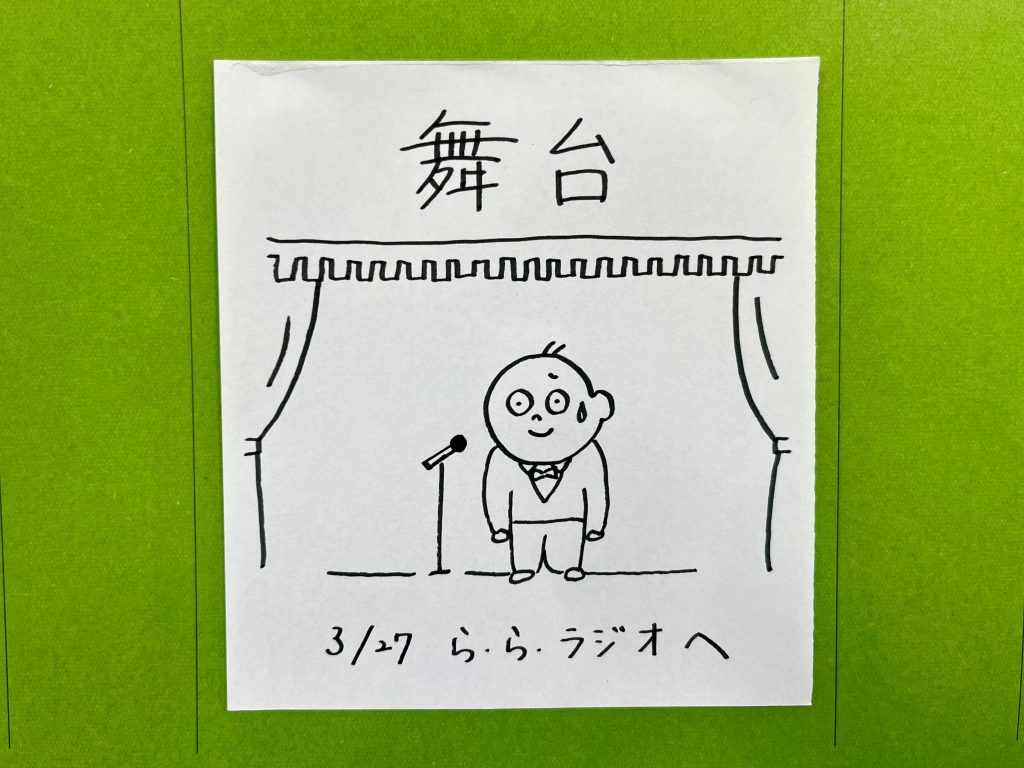 舞台
3/27 ら.ら.ラジオへ